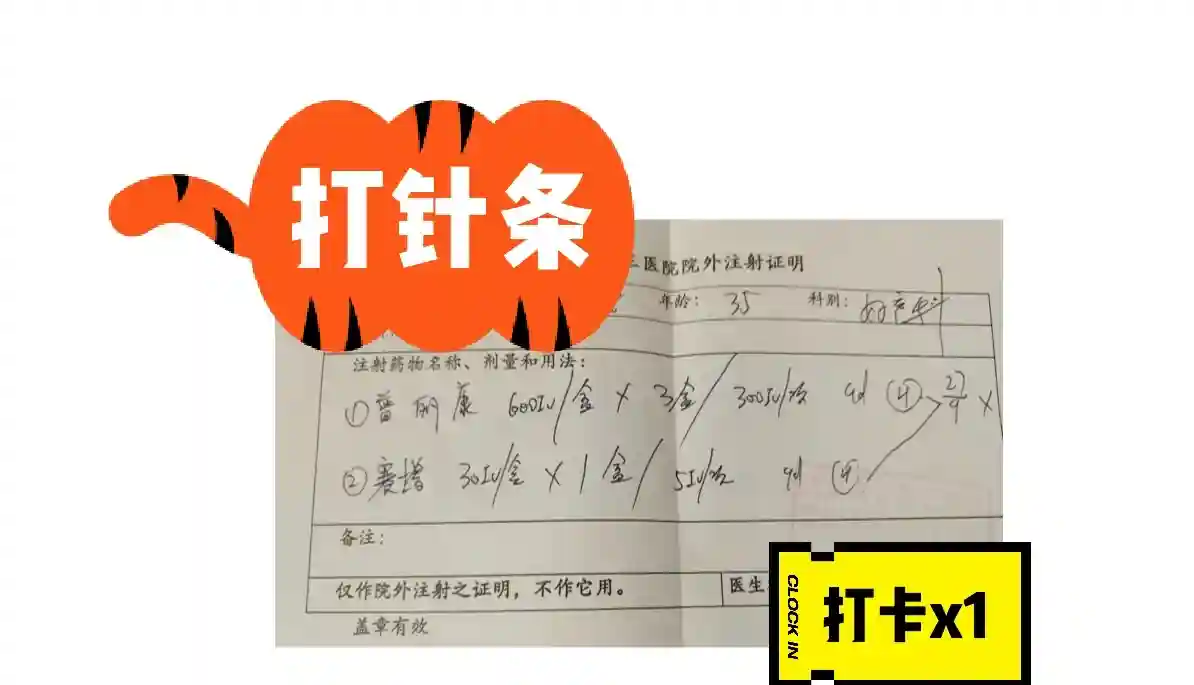 打针条
三医院院外注射证明
年龄: 35 科别: 妇产科
注射药物名称、剂量和用法:
①普丽康 600IU/盒 × 3盒/300IU/次 qd ④ 27/9 ×
②赛增 30IU/盒 × 1盒/5IU/次 qd ④
备注:
仅作院外注射之证明，不作它用。 医生
盖章有效
CLOCK IN
打卡x1